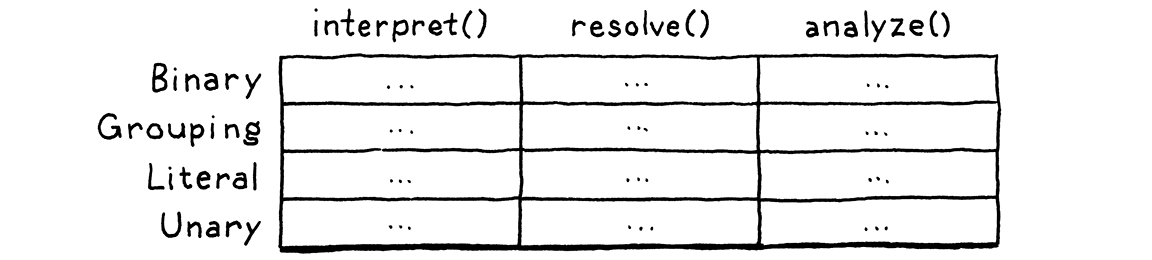 interpret() resolve() analyze()
Binary ... ... ...
Grouping ... ... ...
Literal ... ... ...
Unary ... ... ...